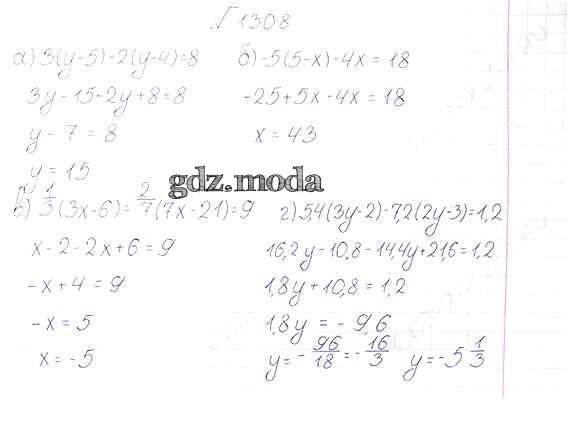 № 1308
а) 3(y-5)-2(y-4)=8
3y-15-2y+8=8
y-7=8
y=15
б) -5(5-x)-4x=18
-25+5x-4x=18
x=43
gdz.moda
в) 1/3(3x-6)=2/7(7x-21)=9
x-2-2x+6=9
-x+4=9
-x=5
x=-5
г) 5,4(3y-2)-7,2(2y-3)=1,2
16,2y-10,8-14,4y+21,6=1,2
1,8y+10,8=1,2
1,8y=-9,6
y=-96/18=-16/3 y=-5 1/3